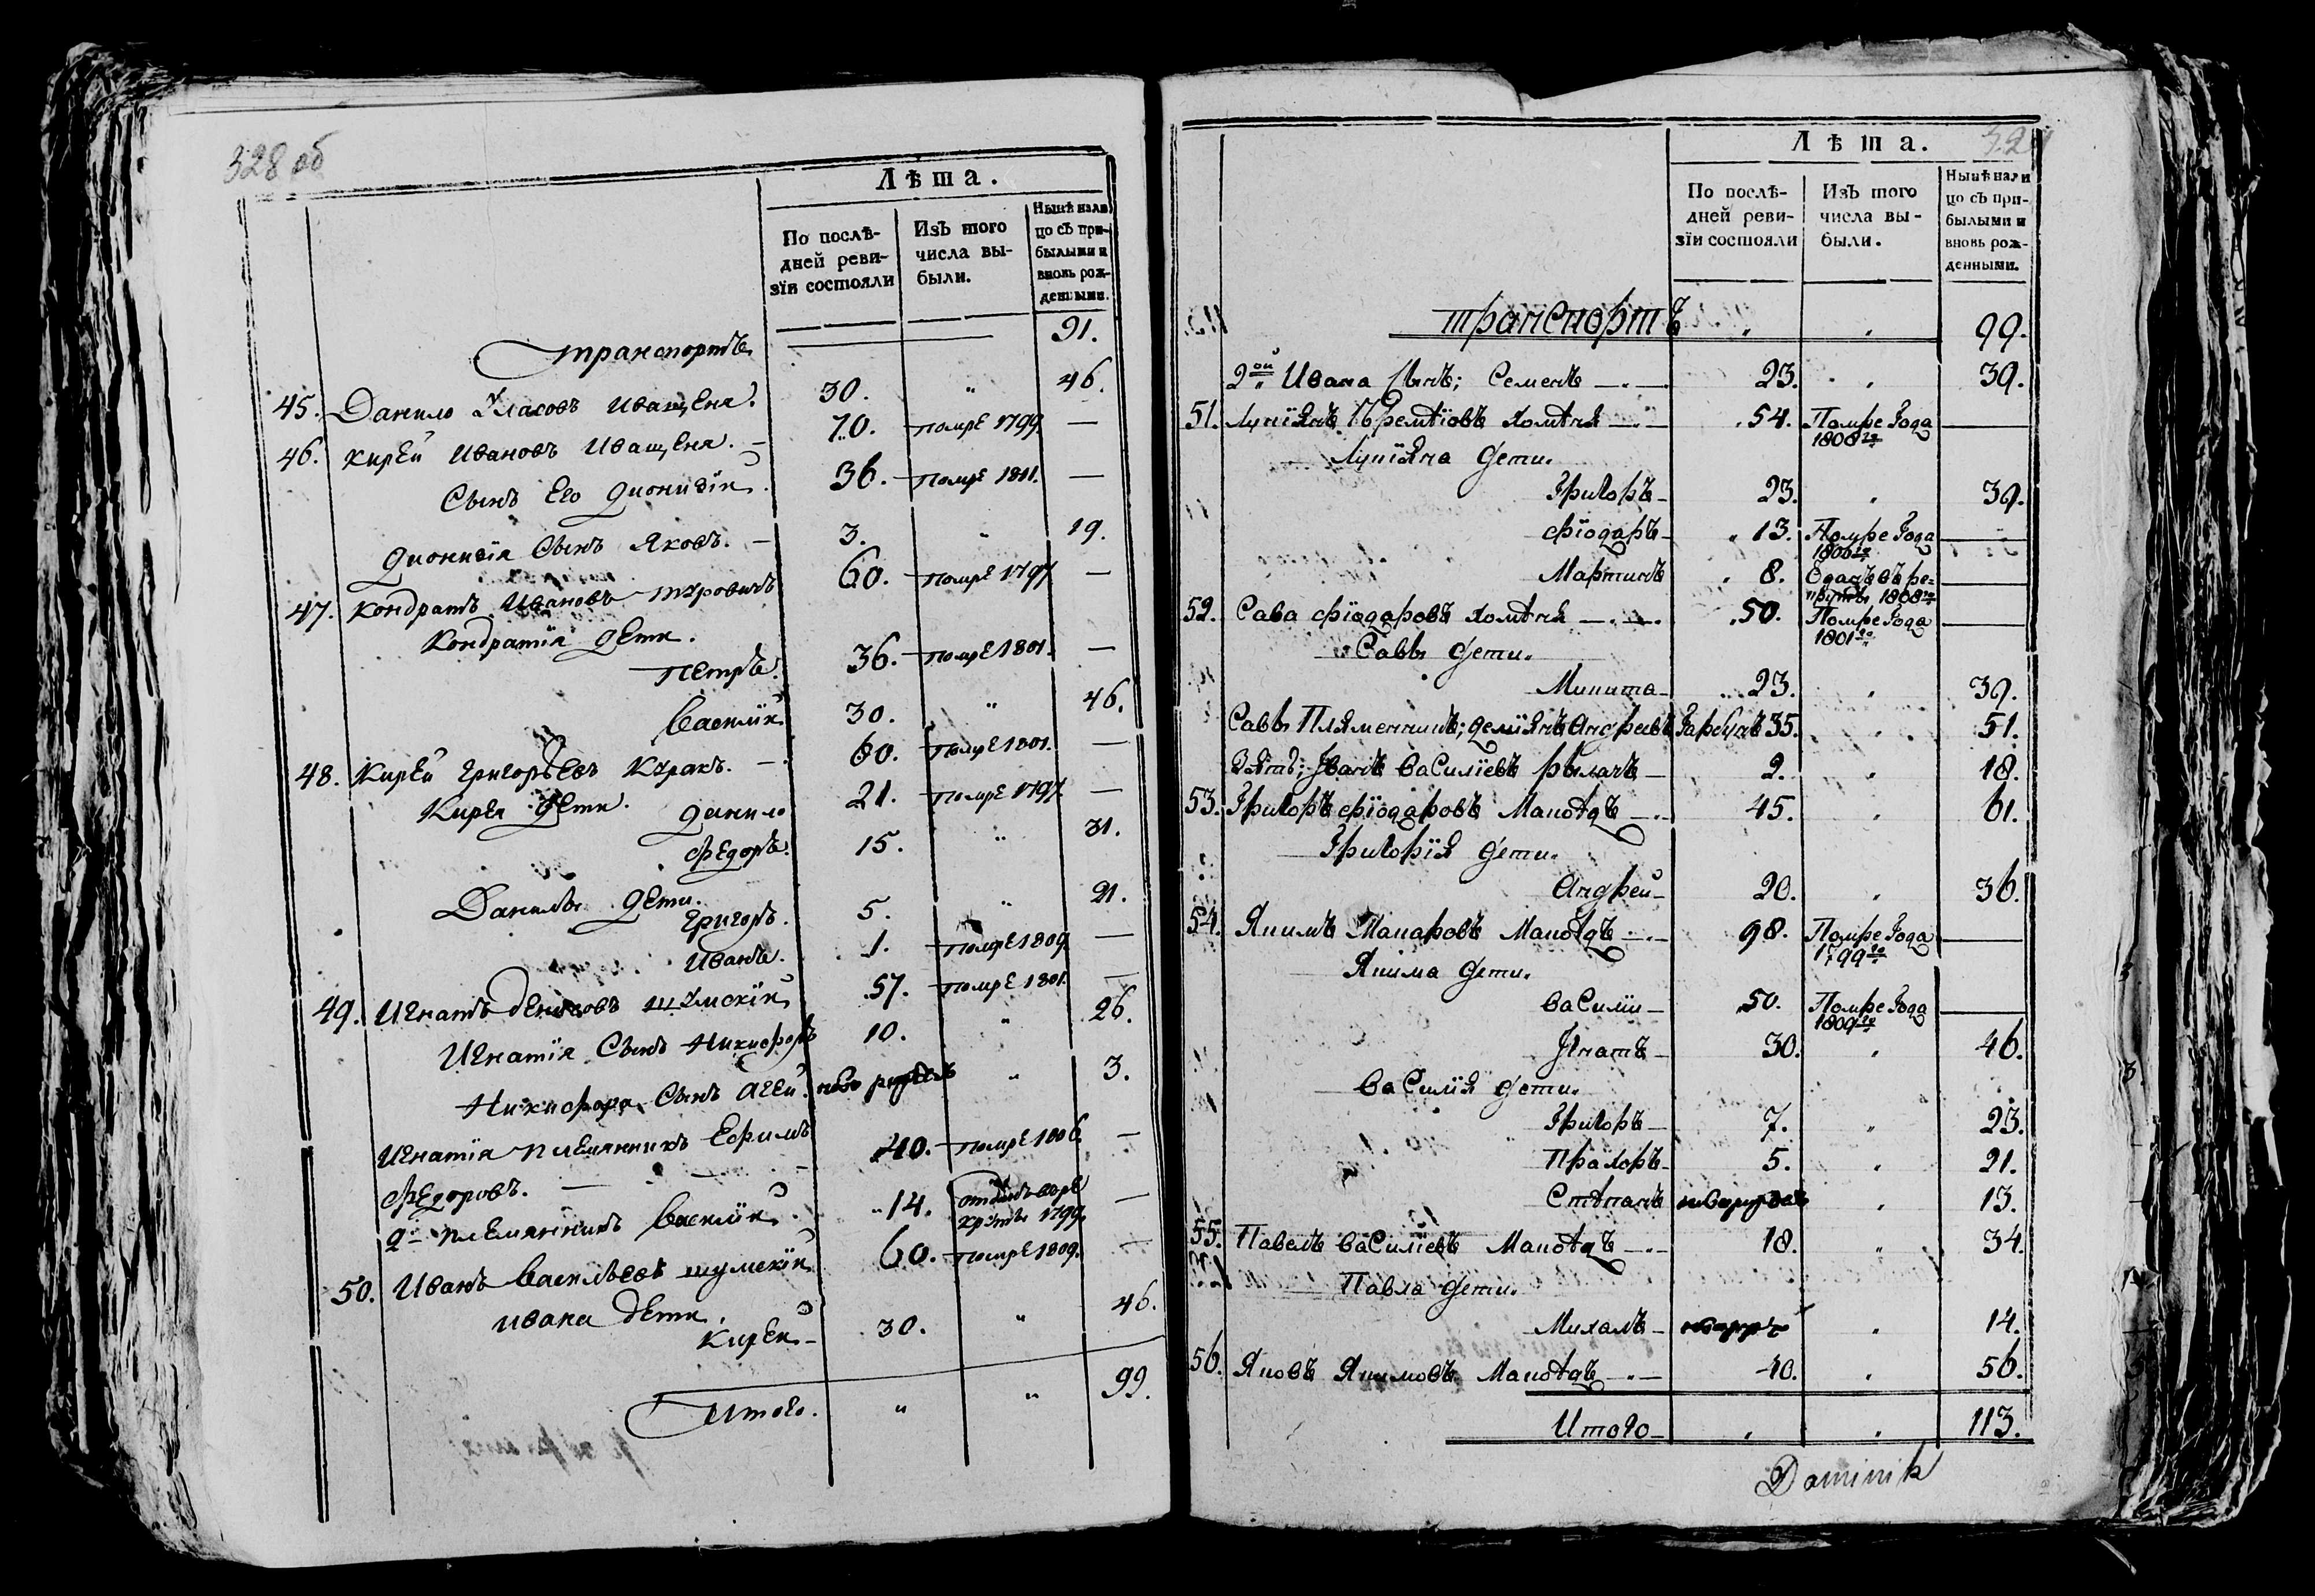 328 об
Лѣта.
По послѣ-
дней реви-
зїи состояли
Изъ того
числа вы-
были.
Нынѣ нали
цо съ при-
былыми и
вновь рож-
денными.
транспортъ 91.
45. Данило Уласовъ Иващеня. 30. " 46.
46. Кирей Ивановъ Иващеня. — 70. помре 1799. —
Сынъ Его Дионизїй. 36. помре 1811. —
Дионизїя Сынъ Яковъ. — 3. " 19.
47. Кондратъ Ивановъ 60. помре 1797 —
Кондратїя дети.
Петръ. 36. помре 1801. —
Василїй 30. " 46.
48. Кирей Григорьевъ Куракъ. — 60. помре 1801. —
Кирея дети. Данило 21. помре 1797. —
Федоръ. 15. " 31.
Данилы дети.
Григоръ. 5. " 21.
Иванъ. 1. помре 1809. —
49. Игнатъ Денисовъ Шумскїй 57. помре 1801. —
Игнатїя Сынъ Никифоръ 10. " 26.
Никифора Сынъ Агей. ново рожденъ " 3.
Игнатїя племянникъ Ефимъ 40. помре 1806. —
Федоровъ. —
2й племянникъ Василїй. 14. отданъ во ре
круты 1799. —
50. Иванъ Васильевъ Шумскїй 60. помре 1809. —
Ивана дети.
Кирей — 30. " 46.
Итого. " " 99.
329
Лѣта.
По послѣ-
дней реви-
зїи состояли
Изъ того
числа вы-
были.
Нынѣ нали
цо съ при-
былыми и
вновь рож-
денными.
транспортъ " " 99.
2ой Ивана Сынъ; Семенъ — 23. " 39.
51. Лукїянъ Ефремѣовъ Хомѣня — 54. Помре Года
1808го —
Лукїяна дети.
Григоръ — 23. " 39.
Фїодаръ — 13. Помре Года
1806го —
Мартинъ 8. Одатъ въ ре=
круты 1808го —
52. Сава Фїодаровъ Хомѣня — 50. Помре Года
1801го —
Савы дети.
Микита — 23. " 39.
Савы Пляменникъ; Демїянъ Андреевъ 35. " 51.
Зять; Иванъ Василїевъ Рыматъ — 2. " 18.
53. Григоръ Фїодаровъ Макоѣдъ — 45. " 61.
Григорїя дети.
Андрей — 20. " 36.
54. Якимъ Макаровъ Макоѣдъ — 98. Помре Года
1799го —
Якима дети.
Василїй — 50. Помре Года
1809го —
Игнатъ — 30. " 46.
Василїя дети.
Григоръ — 7. " 23.
Прахоръ — 5. " 21.
Стѣпанъ " 13.
55. Павелъ Василїевъ Макоѣдъ — 18. " 34.
Павла дети.
Михалъ — " 14.
56. Яковъ Якимовъ Макоѣдъ — 40. " 56.
Итого — " " 113.
Dominik